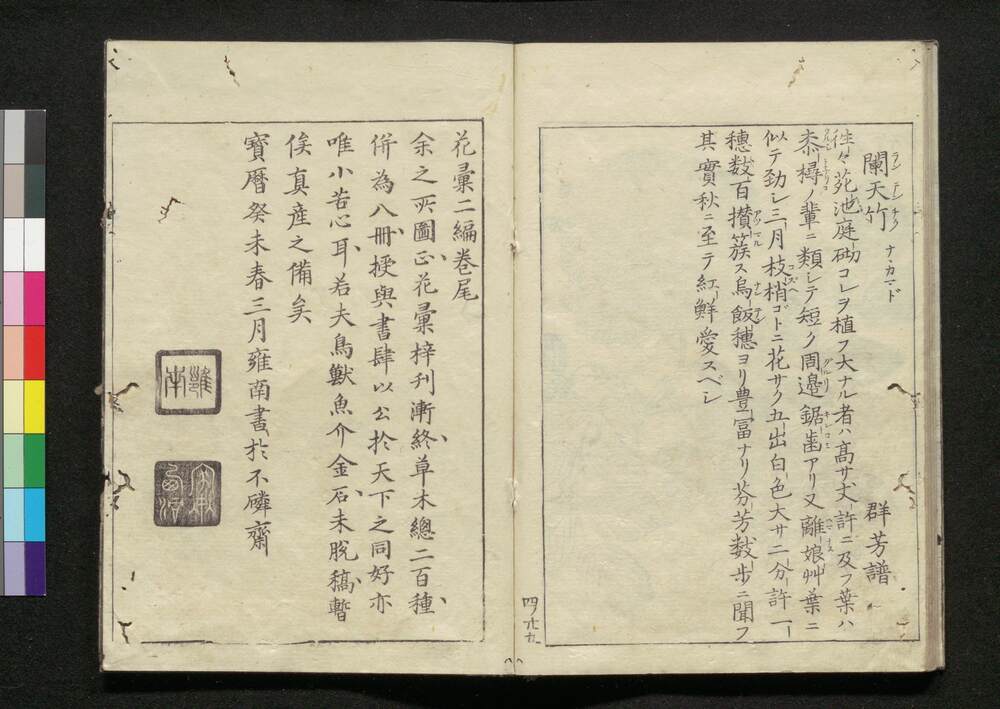 闌天竹 ナヽカマド 群芳譜
ランテンチク
往々苑池庭砌コレヲ植フ大ナル者ハ高サ丈許ニ及フ葉ハ
桼樗ノ輩ニ類シテ短ク周邉鋸齒アリ又離娘艸葉ニ
似テ勁シ三月枝梢ゴトニ花サク五出白色大サ二分許一
穗数百攅簇ス烏飯穗ヨリ豊冨ナリ芬芳数歩ニ聞フ
其實秋ニ至テ紅鮮愛スベシ
花彙二編卷尾
余之所圖正花彙梓刋漸終草木總二百種
併為八冊授與書肆以公於天下之同好亦
唯小苦心耳若夫鳥獸魚介金石未脫稿暫
俟真産之備矣
寶曆癸未春三月雍南書於不磷齋
雝南